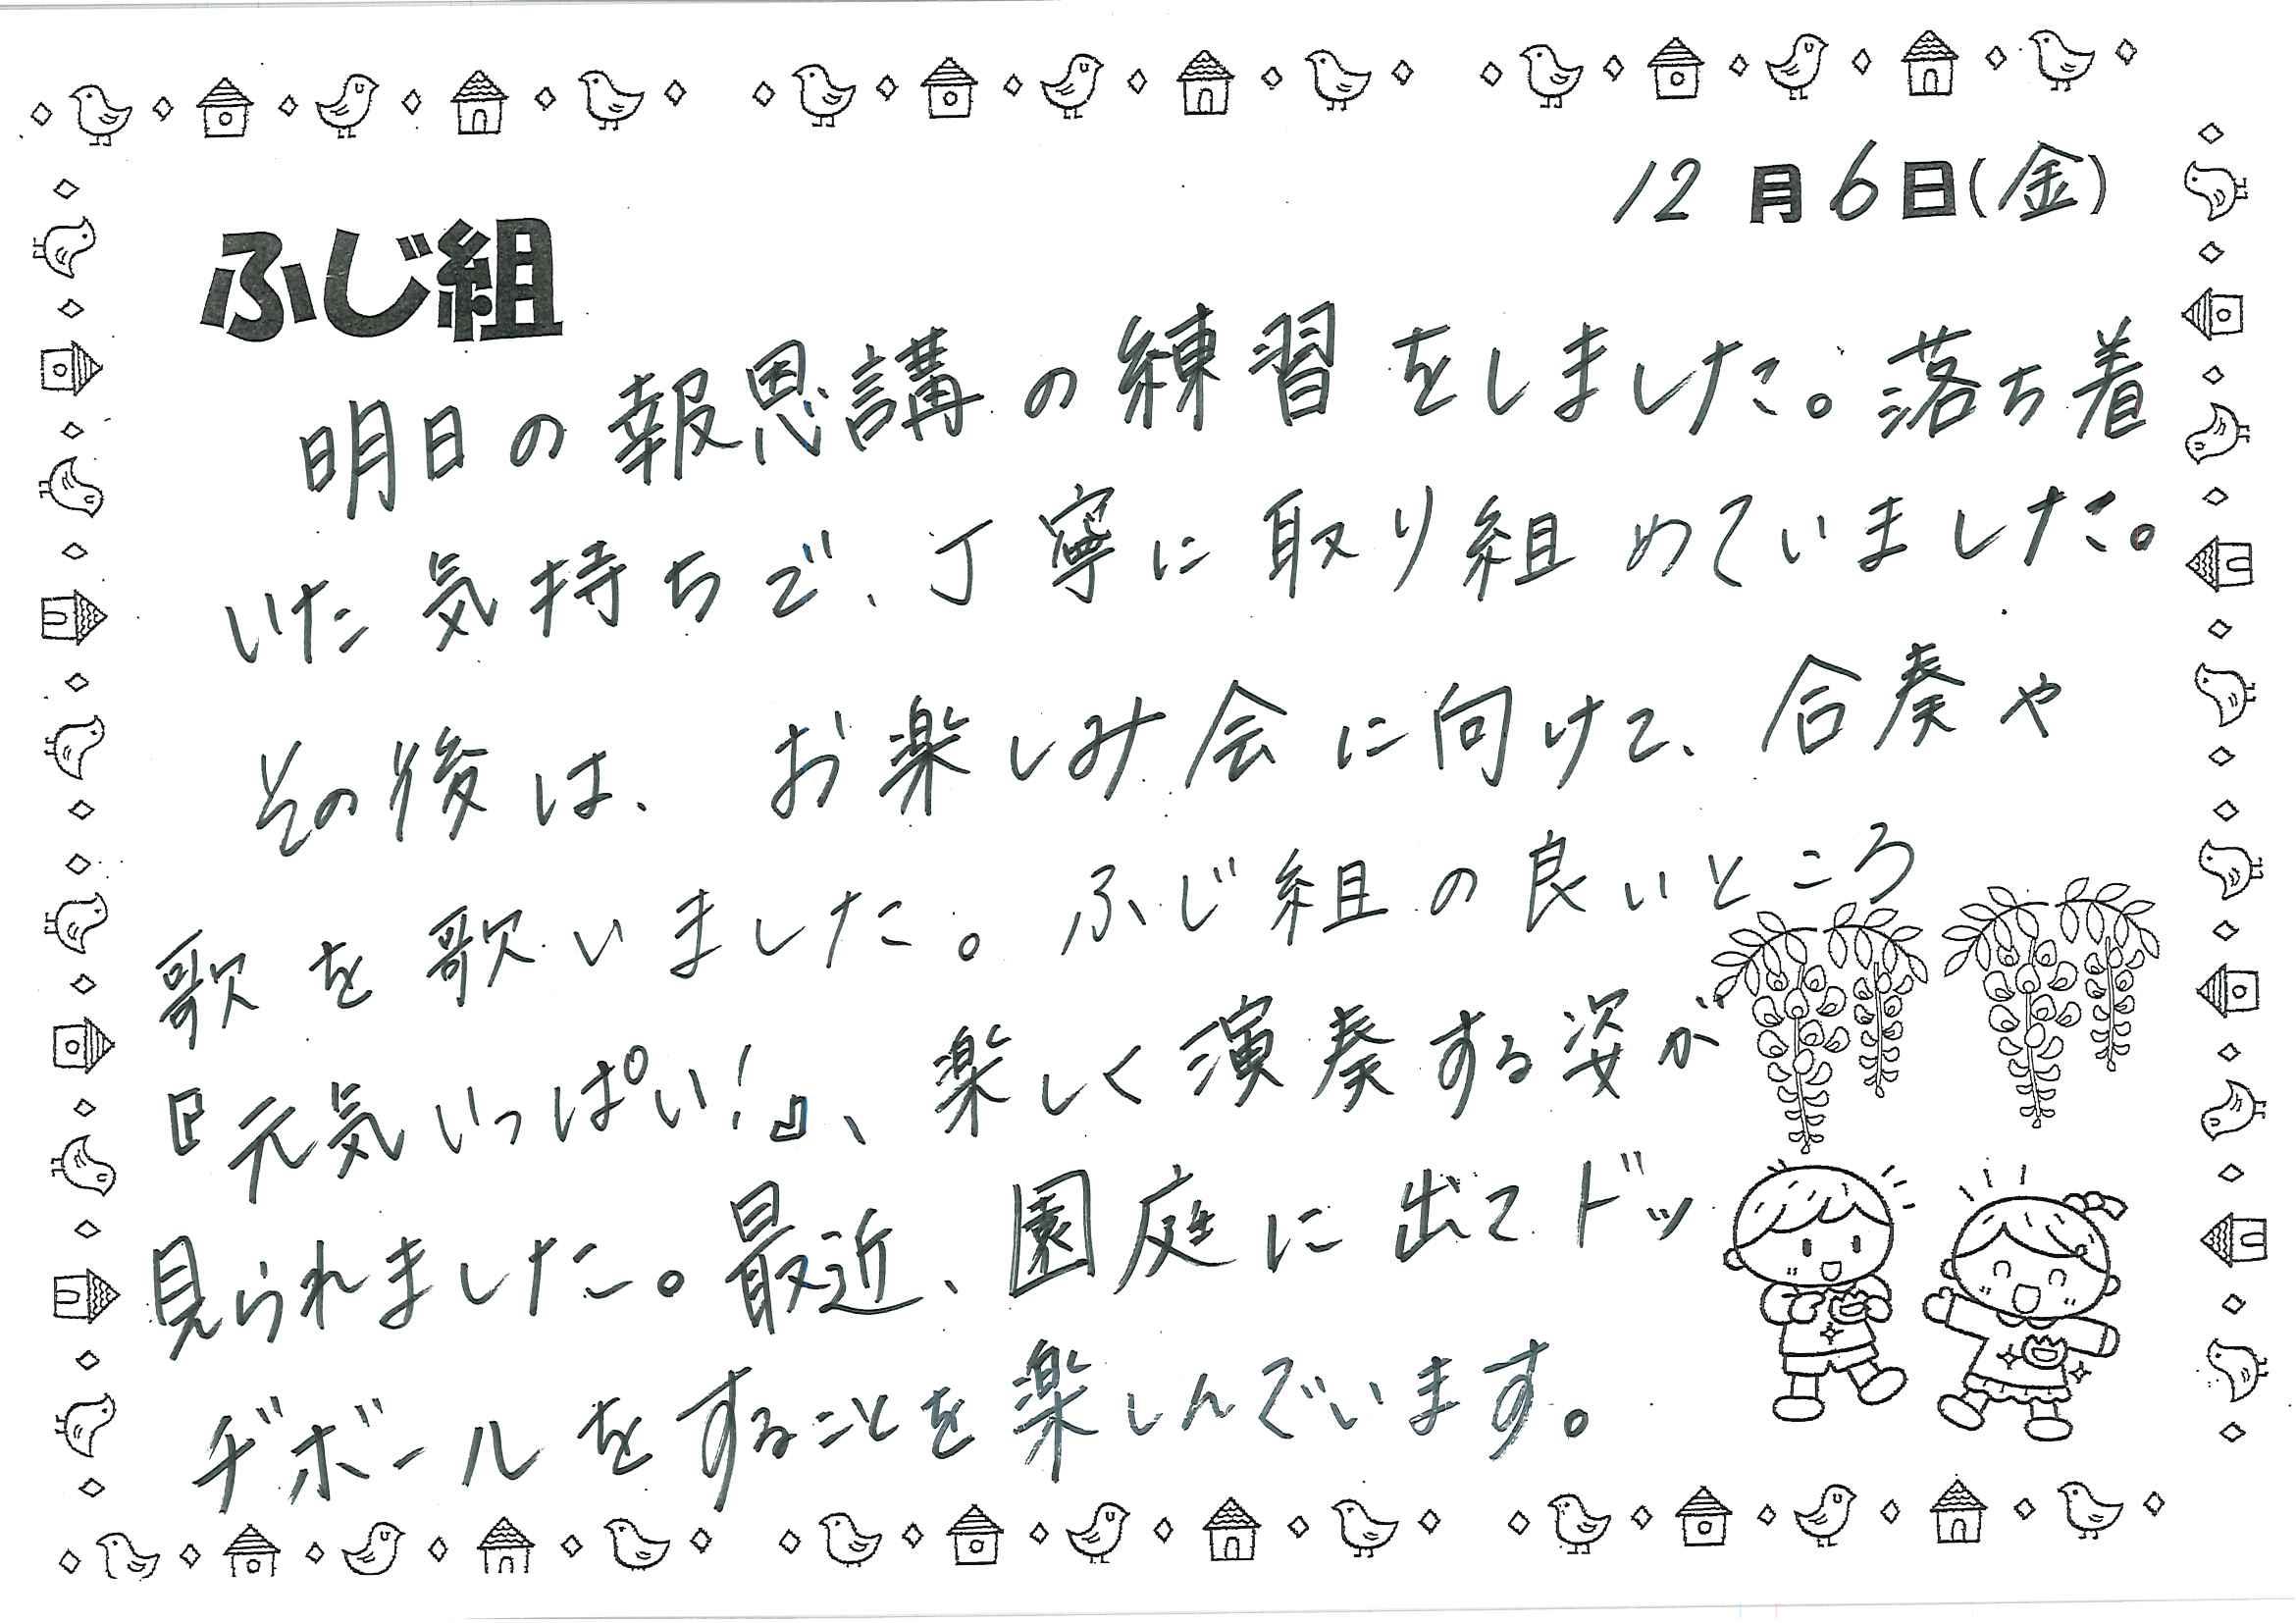 12月6日(金)
ふじ組
明日の報恩講の練習をしました。落ち着
いた気持ちで、丁寧に取り組めていました。
その後は、お楽しみ会に向けて、合奏や
歌を歌いました。ふじ組の良いところ
『元気いっぱい!』、楽しく演奏する姿が
見られました。最近、園庭に出てドッ
ヂボールをすることを楽しんでいます。